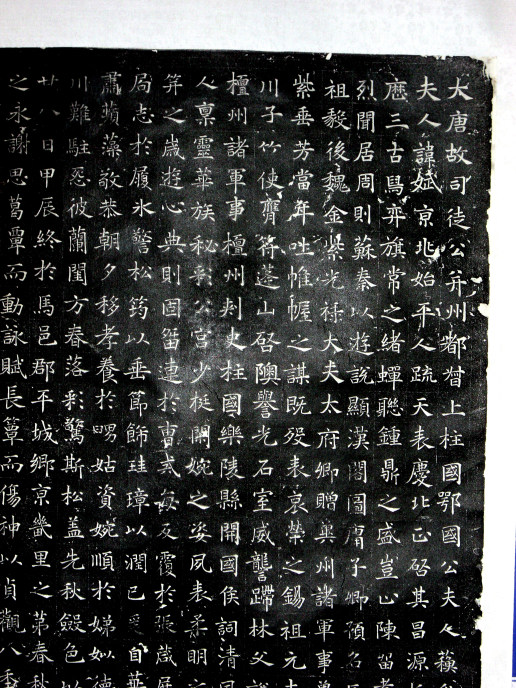 大唐故司徒公并州都督上柱國鄂國公夫人蘇
夫人諱娬京兆始平人疏天表慶北正啓其昌源
庶三古舄弈旗常之緒蟬聯鍾鼎之盛豈止陳留
烈聞居周則蘇秦以遊說顯漢閣圖屑子卿預名
祖毅後魏金紫光祿大夫太府卿贈兾州諸軍事
紫垂芳當年吐帷幄之謀既歿表哀榮之錫祖元
川子竹使膺符蓬山啓隩譽光石室威讋蹛林父
檀州諸軍事檀州刾史柱國樂陵縣開國侯詞清
人稟靈華族秘彩公宮少挺閑婉之姿夙表柔明
笄之歲遊心典則因笛連於曹貳每反覆於張箴
局志於履氷警松筠以垂節飾珪璋以潤己爰自
肅蘋藻敬恭朝夕移孝養於嚳姑資婉順於娣姒德
川難駐忽彼蘭閨方春落彩驚斯松蓋先秋㱩色以
廿八日甲辰終於馬邑郡平城鄉京畿里之第春秋
之永謝思葛覃而動詠賦長簟而傷神以貞觀八季